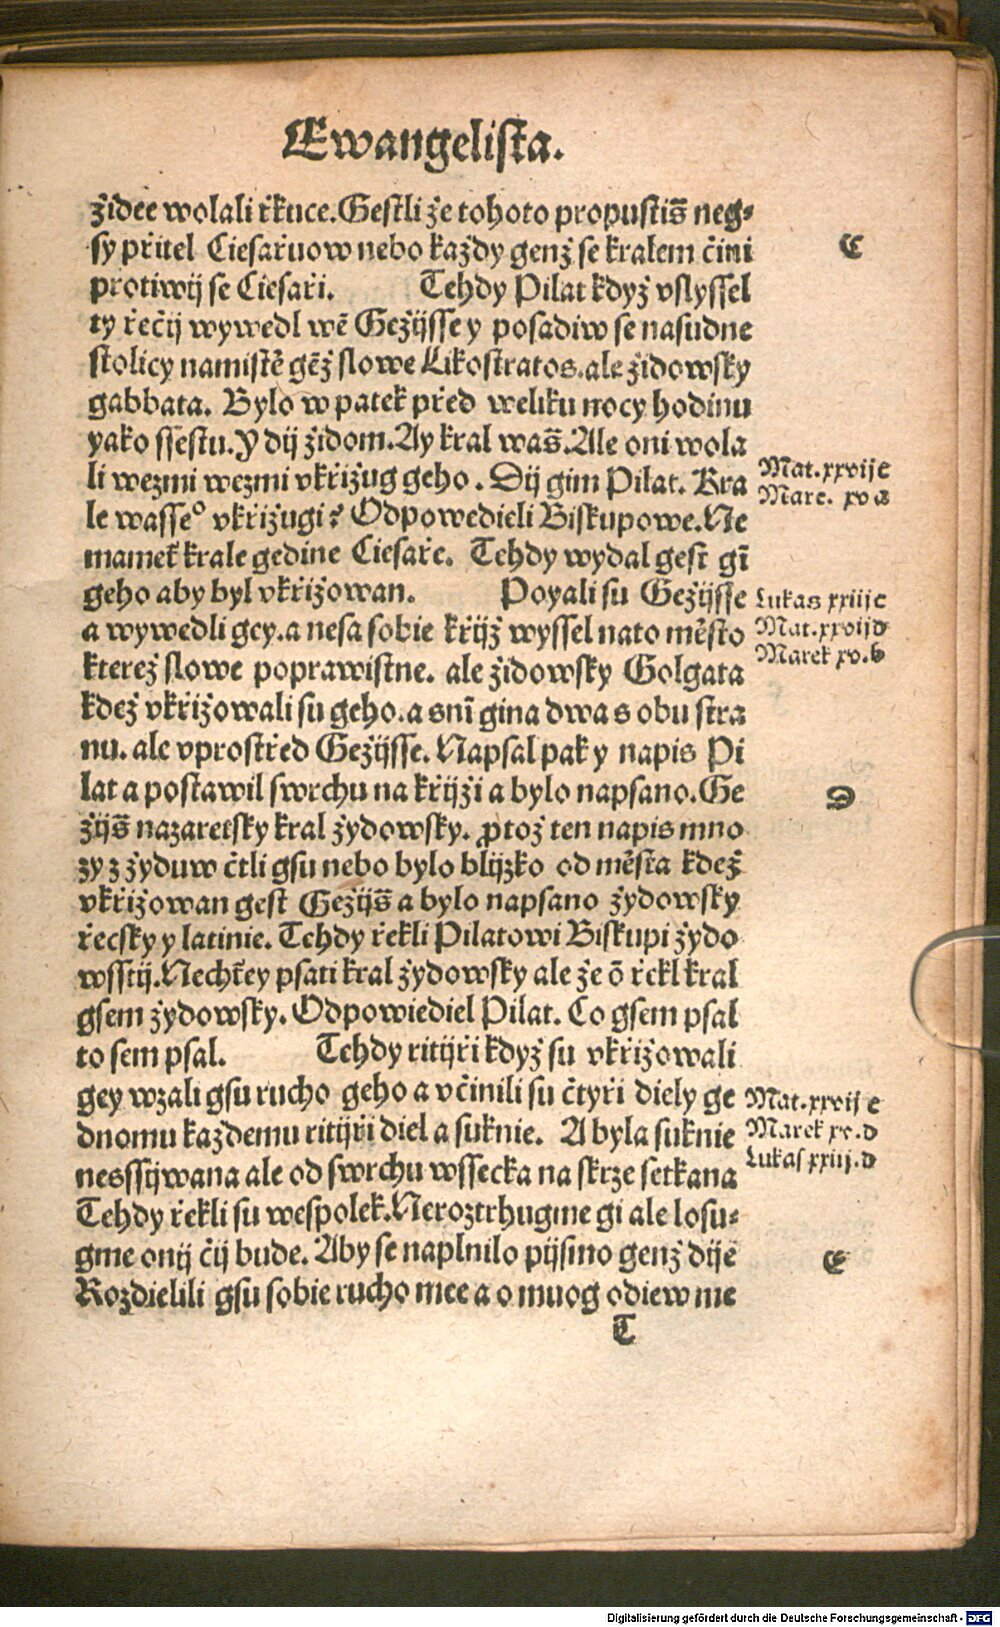 Ewangelista.
židee wolali řkuce. Gestli že tohoto propustiš neg⸗
sy přitel Ciesařuow nebo každy genž se kralem čini
protiwij se Ciesaři. Tehdy Pilat když vslyssel
ty řečij wywedl wē Gežijsse y posadiw se nasudne
stolicy namistě gēž slowe Likostratos. ale židowsky
gabbata. Bylo w patek před weliku nocy hodinu
yako ssestu. Y dij židom. Ay kral waš. Ale oni wola
li wezmi wezmi vkřižug geho. Dij gim Pilat. Kra
le wasseº vkřižugi? Odpowedieli Biskupowe. Ne
mameť krale gedine Ciesaře. Tehdy wydal gest gī
geho aby byl vkřižowan. Poyali su Gežijsse
a wywedli gey. a nesa sobie křijž wyssel nato město
kterež slowe poprawistne. ale židowsky Golgata
kdež vkřižowali su geho. a snī gina dwa s obu stra
nu. ale vprostřed Gežijsse. Napsal pak y napis Pi
lat a postawil swrchu na křijži a bylo napsano. Ge
žijš nazaretsky kral žydowsky. ꝓtož ten napis mno
zy z žyduw čtli gsu nebo bylo blijzko od města kdež
vkřižowan gest Gežijš a bylo napsano žydowsky
řecsky y latinie. Tehdy řekli Pilatowi Biskupi žydo
wsstij. Nechtěy psati kral žydowsky ale že ō řekl kral
gsem žydowsky. Odpowiediel Pilat. Co gsem psal
to sem psal. Tehdy ritijři když su vkřižowali
gey wzali gsu rucho geho a včinili su čtyři diely ge
dnomu každemu ritijři diel a suknie. A byla suknie
nessijwana ale od swrchu wssecka na skrze setkana
Tehdy řekli su wespolek. Neroztrhugme gi ale losu⸗
gme onij čij bude. Aby se naplnilo pijsmo genž dije
Rozdielili gsu sobie rucho mee a o muog odiew me
T
C
Mat. xxvij e
Marc. xv a
Lukas xxiij c
Mat. xxvij d
Marek xv. b
D
Mat. xxvij e
Marek xv. d
Lukas xxiij. d
E
Digitalisierung gefördert durch die Deutsche Forschungsgemeinschaft - DFG